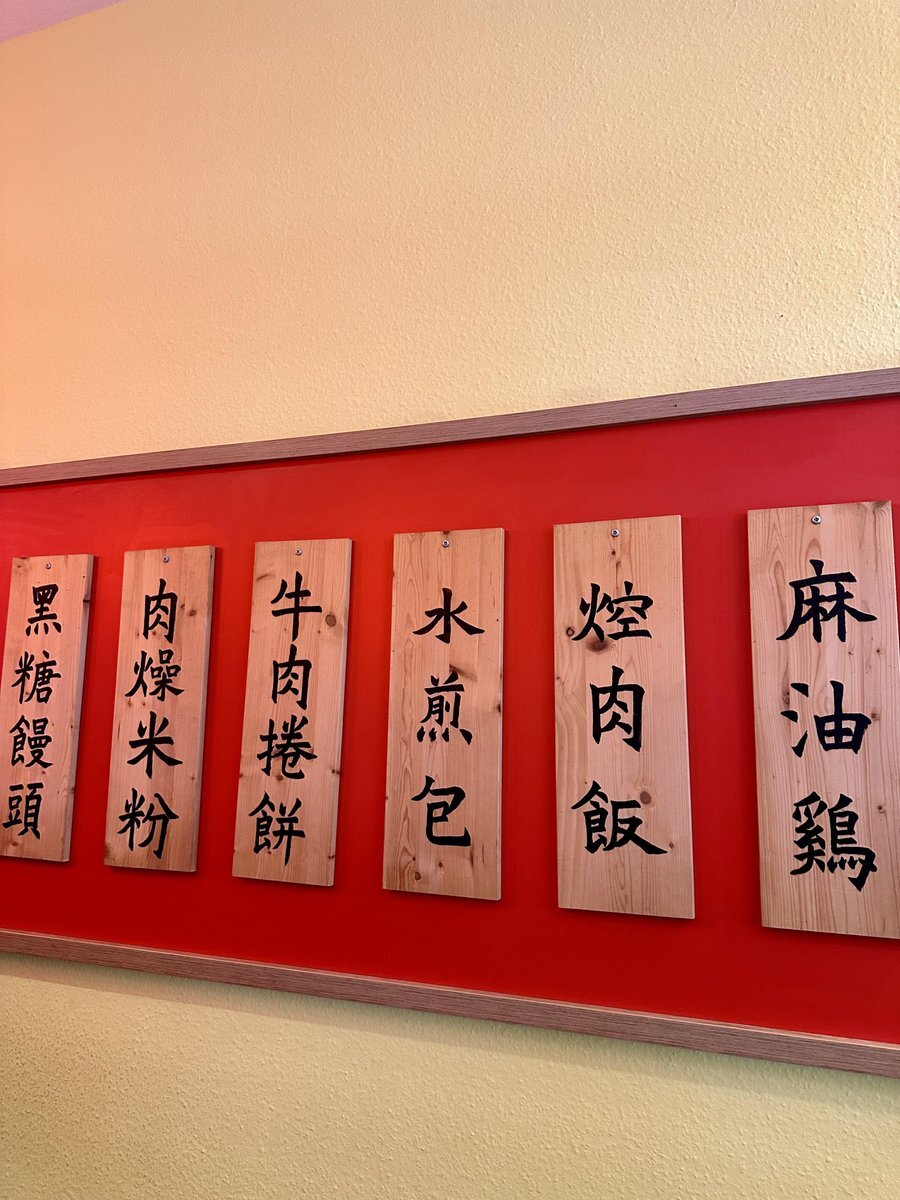 麻油鷄
焢肉飯
水煎包
牛肉捲餅
肉燥米粉
黑糖饅頭